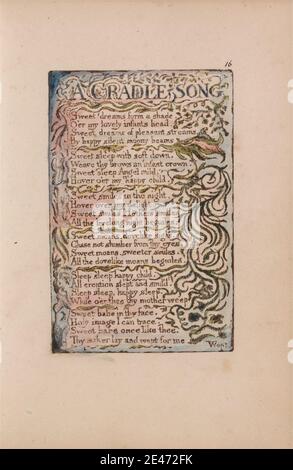 16
A CRADLE SONG
Sweet dreams form a shade
O'er my lovely infants head.
Sweet dreams of pleasant streams
By happy silent moony beams
Sweet sleep with soft down.
Weave thy brows an infant crown.
Sweet sleep Angel mild,
Hover o'er my happy child.
Sweet smiles in the night
Hover over my
Sweet smiles Mothers smiles
All the livelong night
Sweet moans,
Chase not slumber from thy eyes
Sweet moans, sweeter smiles.
All the dovelike moans beguiles.
Sleep sleep happy child.
All creation slept and smil'd.
Sleep sleep, happy sleep.
While o'er thee thy mother weep
Sweet babe in thy face,
Holy image I can trace.
Sweet babe once like thee.
Thy maker lay and wept for me
Wept
alamy
Image ID: 2E472FK
www.alamy.com